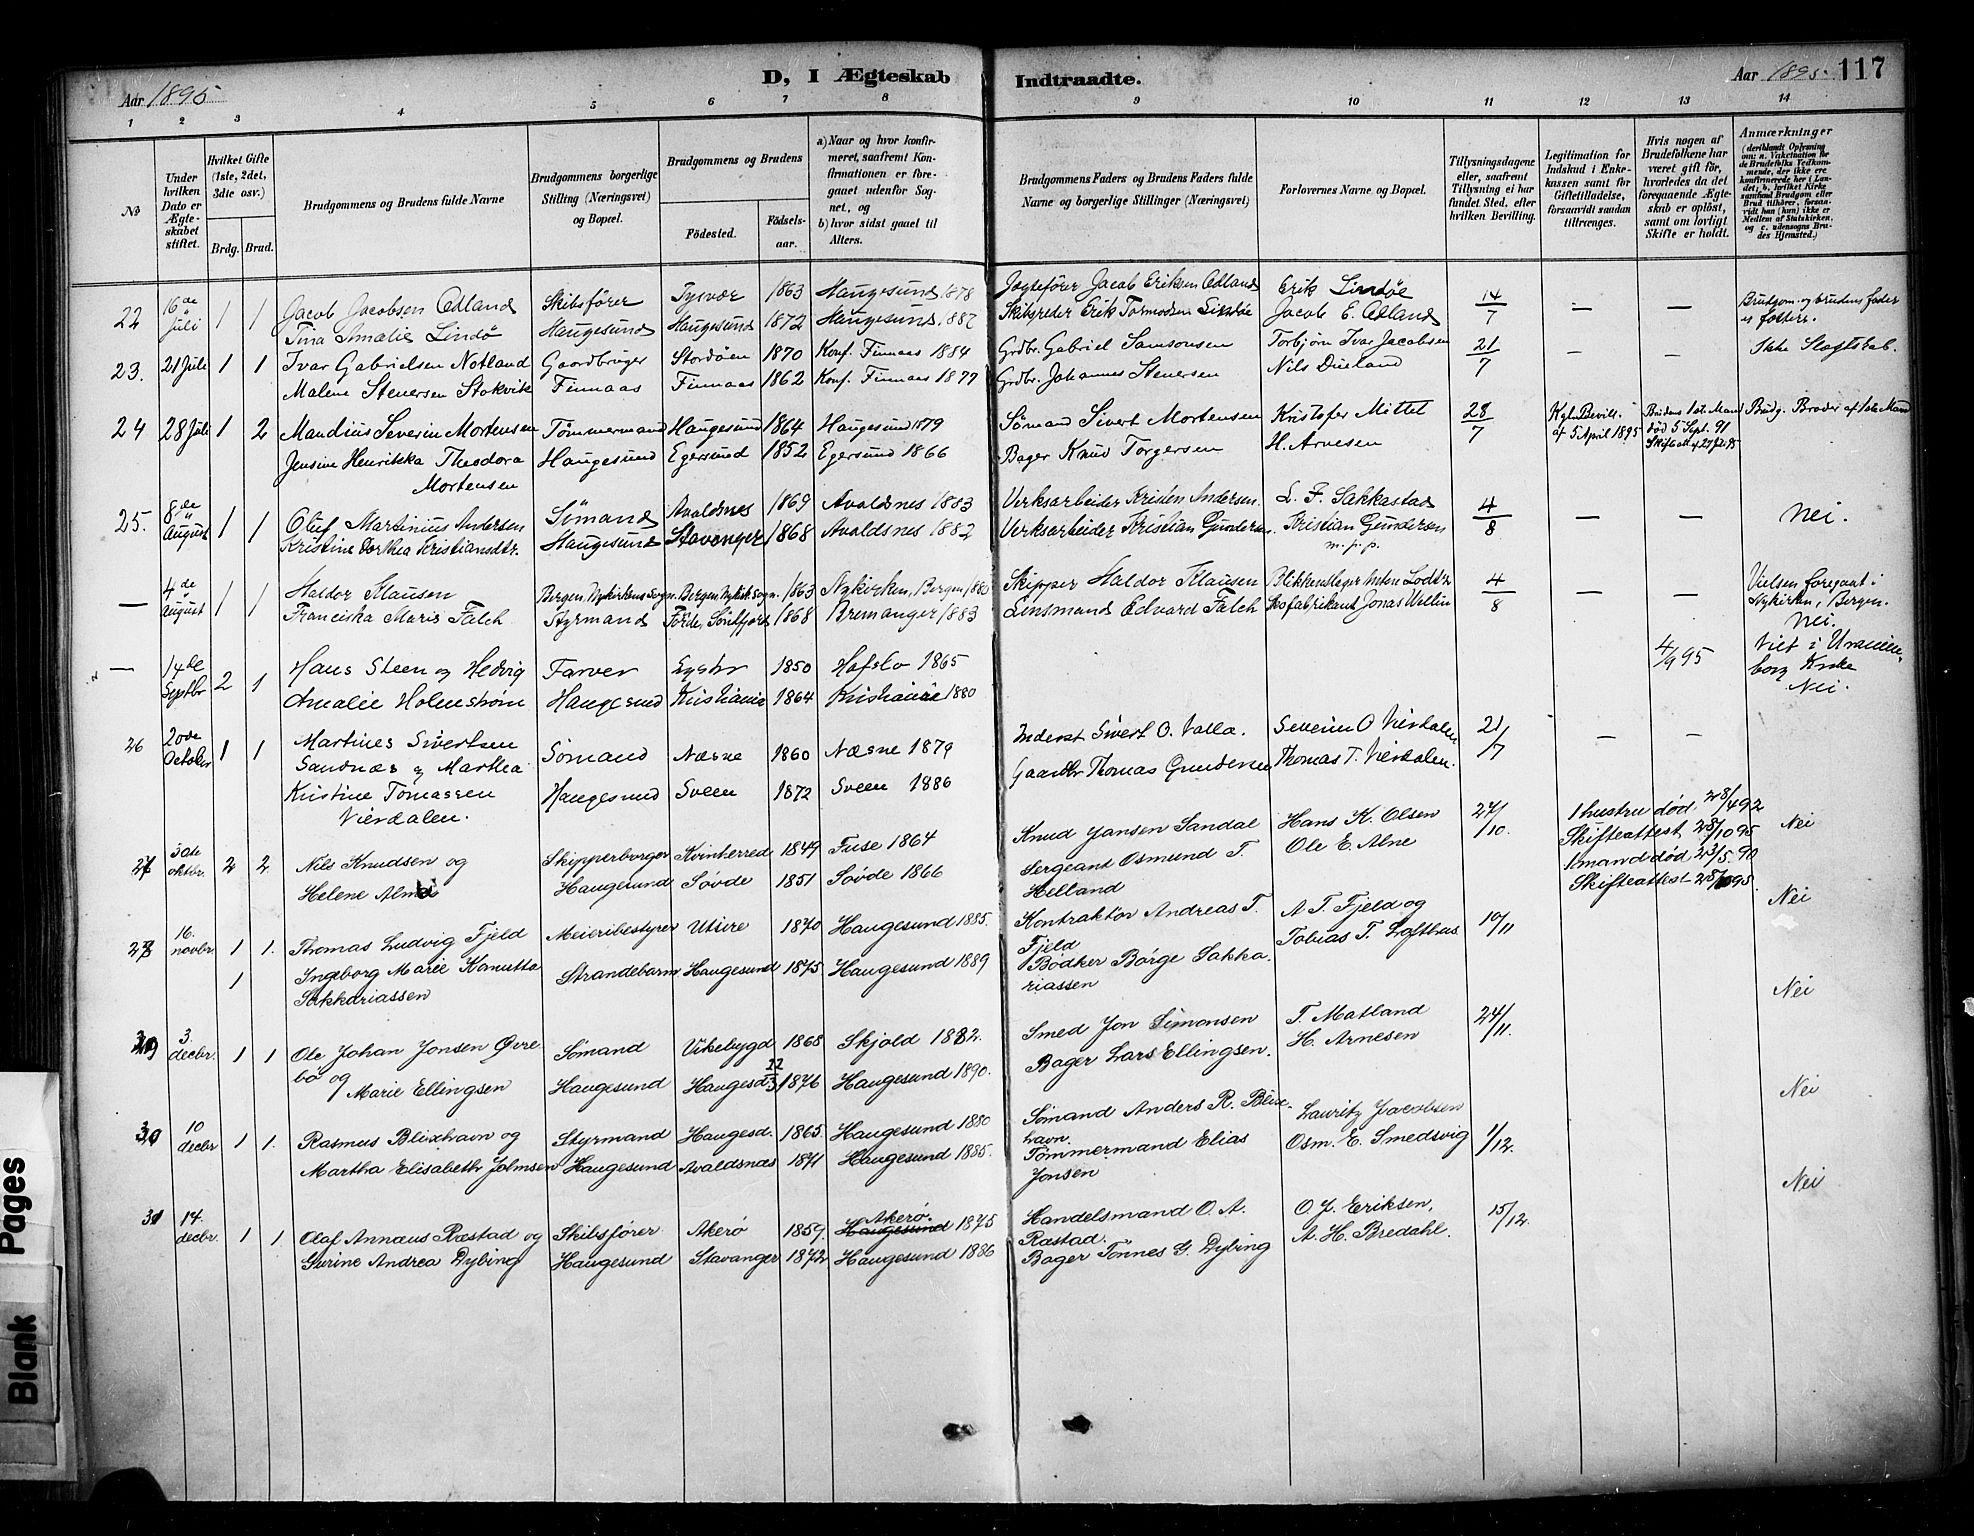 D, I Ægteskab Indtraadte.
Aar 1895
Aar 1895. 117
1 2 3 4 5 6 7 8 9 10 11 12 13 14
No
Under hvilken Dato er Ægteskabet stiftet.
Hvilket Gifte (1ste, 2det, 3die osv.)
Brdg. Brud.
Brudgommens og Brudens fulde Navne
Brudgommens borgerlige Stilling (Næringsvei) og Bopæl.
Brudgommens og Brudens
Fødested.
Fødselsaar.
a) Naar og hvor konfirmeret, saafremt Konfirmationen er foregaaet udenfor Sognet, og
b) hvor sidst gaaet til Alters.
Brudgommens Faders og Brudens Faders fulde Navne og borgerlige Stillinger (Næringsvei)
Forlovernes Navne og Bopæl.
Tillysningsdagene eller, saafremt Tillysning ei har fundet Sted, efter hvilken Bevilling.
Legitimation for Indskud i Enkekassen samt for Giftetilladelse, forsaavidt saadan tiltrænges.
Hvis nogen af Brudefolkene har været gift før, hvorledes da det foregaaende Ægteskab er opløst, samt om lovligt Skifte er holdt.
Anmærkninger
(deriblandt Oplysning om: a. Vakcination for de Brudefolks Vedkommende, der ikke ere konfirmerede her i Landet; b. hvilket Kirkesamfund Brudgom eller Brud tilhører, forsaavidt han (hun) ikke er Medlem af Statskirken, og c. udensogns Brudes Hjemsted.)
22 16de Juli 1 1 Jacob Jacobsen Adland Skibsfører Tysvær 1863 Haugesund 1878 Jægtefører Jacob Eriksen Adland Erik Lindøe 14/7 — — Brudgom. og brudens fader
Tina Amalie Lindø Haugesund Haugesund 1872 Haugesund 1887 Skibsreder Erik Tormodsen Lindøe Jacob E. Adland
23. 21 Juli 1 1 Ivar Gabrielsen Notland Gaardbruger Stordøen 1870 Konf. Finnaas 1884 Grdbr. Gabriel Samsonsen Torbjørn Ivar Jacobsen 21/7 — — Ikke Slægtskab.
Malene Stenersen Stokvik Finnaas Finnaas 1862 Konf. Finnaas 1877 Grdbr. Johannes Stenersen Nils Dueland
24 28 Juli 1 2 Mandius Severin Mortensen Tømmermand Haugesund 1864 Haugesund 1879 Sømand Sivert Mortensen Kristofer Mittet 28/7 Kgln Bevill. af 5 April 1895 Brudens 1ste Mand død 5 Sept. 91 Skifteatt. af 27 Juli 95 Brudg. Broder af 1ste Mand
Jensine Henrikka Theodora Mortensen Haugesund Egersund 1852 Egersund 1866 Bager Knud Torgersen H. Arnesen
25. 8de August 1 1 Oluf Martinius Andersen Sømand Avaldsnes 1869 Avaldsnes 1883 Verksarbeider Kristen Andersen. L. F. Sakkastad 4/8 — — Nei.
Kristine Dorthea Kristiansdtr. Haugesund Stavanger 1868 Avaldsnes 1882 Verksarbeider Kristian Gundersen. Kristian Gundersen
m. p. p.
— 4de August 1 1 Haldor Klausen Bergen, Nykirkens Sogn. Bergen, Nykirk. Sogn. 1863 Nykirken, Bergen, 1880 Skipper Haldor Klausen Blikkenslager Anton Lodtz 4/8 — — Vielsen foregaat i Nykirken, Bergen. Nei.
Franciska Maris Falch Styrmand Førde, Søndfjord 1868 Bremanger 1883 Lensmand Edvard Falch Skofabrikant Jonas Wellin
— 14de Septbr 2 1 Hans Steen og Hedvig Farver Lyster 1850 Hafslo 1865 4/9 95 Viet i Uranienborg Kirke Nei.
Amalie Holmstrøm Haugesund Kristiania 1864 Kristiania 1880
26 20de October 1 1 Martines Sivertsen Sandnæs og Marthea Sømand Næsne 1860 Næsne 1879 Inderst Sivert O. Valla. Severin O Vierdalen 21/7 — —
Kristine Tomassen Vierdalen. Haugesund Sveen 1872 Sveen 1886 Gaardbr Thomas Gundersen Thomas T. Vierdalen.
27 30te oktbr. 2 2. Nils Knudsen og Skipperborger Kvinherred 1849 Fuse 1864 Knud Jansen Sandal Hans K. Olsen 27/10. 1 hustru død 28/4 92 Skifteattest 28/10 95 Nei
Helene Alne Haugesund Søvde 1851 Søvde 1866 Sergeant Osmund T. Helland Ole E. Alne 1 mand død 23/5. 90 Skifteattest 28/10 95.
28 16. novbr. 1 1. Thomas Ludvig Fjeld Meieribestyrer Utsire 1870 Haugesund 1885. Kontraktør Andreas T. Fjeld A. T. Fjeld og 10/11 Nei
1 Ingeborg Marie Kanutta Sakkariassen Strandebarm Haugesund 1875 Haugesund 1889 Bødker Børge Sakkariassen Tobias T. Lofthus
29 3. decbr. 1 1 Ole Johan Jonsen Øvrebø og Sømand Vikebygd 1868 Skjold 1882. Smed Jon Simonsen T. Matland 24/11. Nei
Marie Ellingsen Haugesund Haugesd. 22/3 1876 Haugesund 1890. Bager Lars Ellingsen. H. Arnesen
30 10 decbr 1 1. Rasmus Blixhavn og Styrmand Haugesd. 1865. Haugesund 1880 Sømand Anders R. Blixhavn. Lauritz Jacobsen 1/12. Nei
Martha Elisabeth Johnsen Haugesund Avaldsnæs 1871 Haugesund 1885. Tømmermand Elias Jonsen Osm. E. Smedsvig
31 14. decbr. 1 1. Olaf Annæus Rastad og Skibsfører Akerø 1859. Haugesund Akerø. 1875 Handelsmand O. A. Rastad. O. J. Eriksen, 15/12. Nei
Surine Andrea Dybing Haugesund Stavanger 1872 Haugesund 1886 Bager Tønnes G. Dybing A. H. Bredahl.
Blank Pages